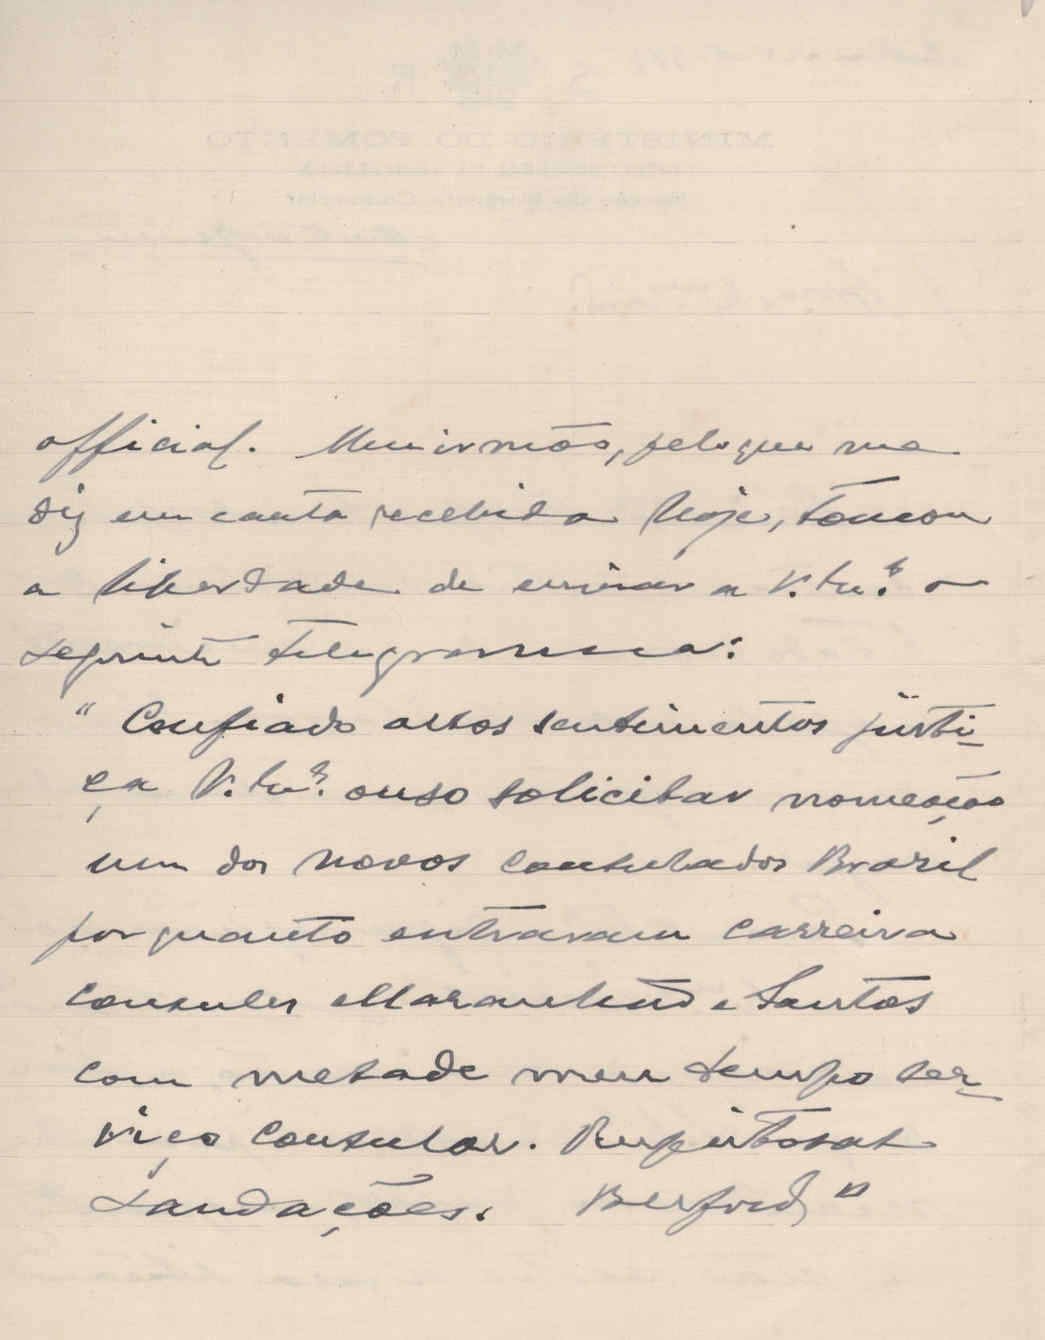 official. Meu irmão, pelo que me
diz em carta recebida hoje, tomou
a liberdade de enviar a V. Exª. o
seguinte telegramma:
"Confiado altos sentimentos justi-
ça V. Exª. ouso solicitar nomeação
um dos novos consulados Brazil
porquanto entraram carreira
consules Maranhão e Santos
com metade meu tempo ser-
viço consular. Respeitosas
saudações. Berford"